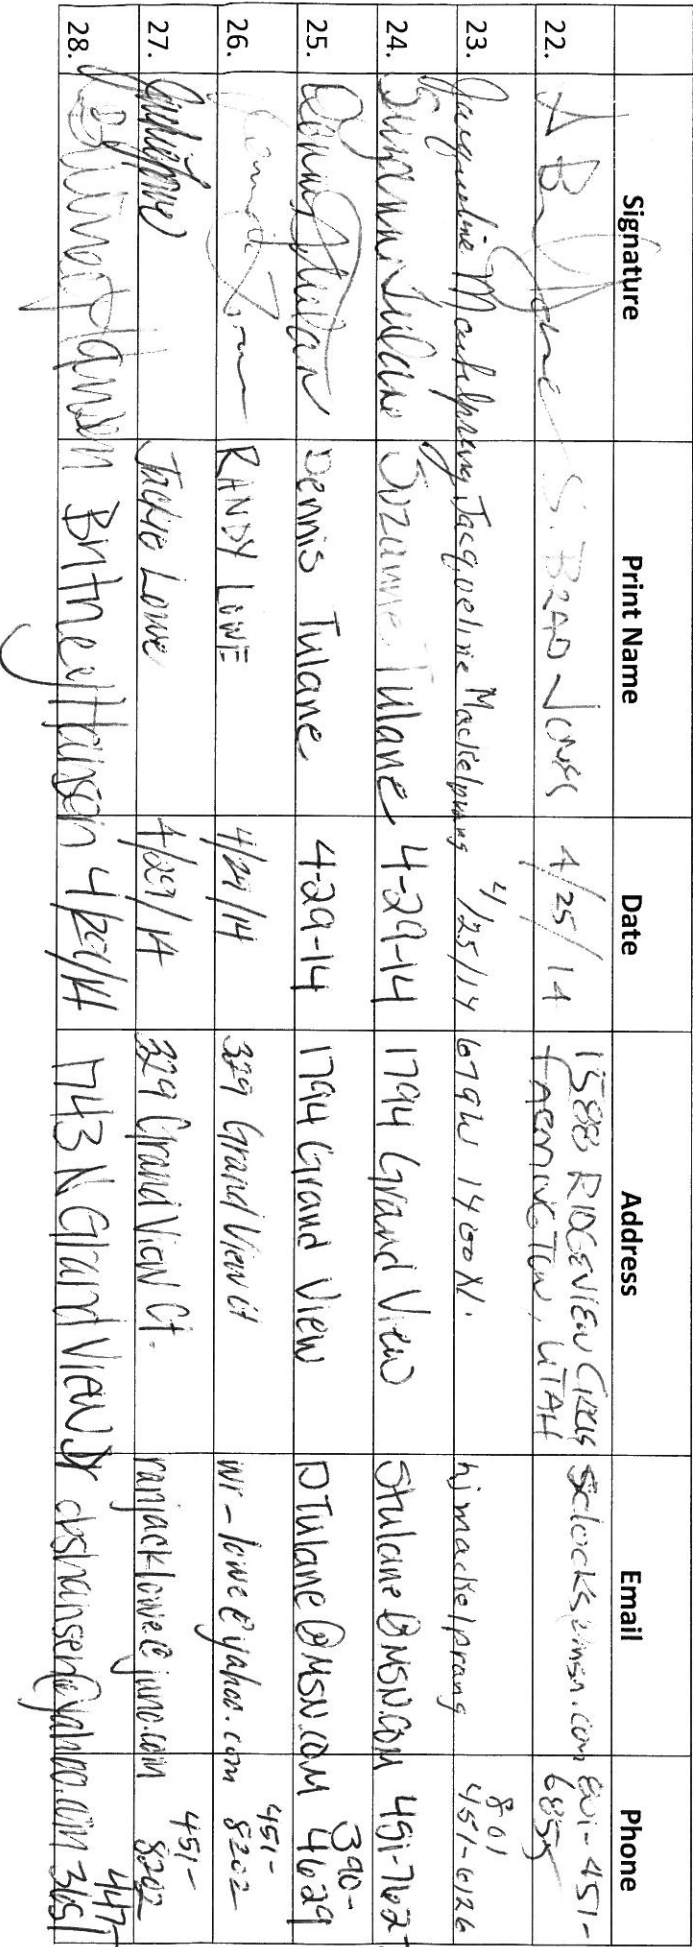 Signature Print Name Date Address Email Phone
22. S. BRAD JONES 4/25/14 1588 RIDGEVIEW CIRCLE FARMINGTON, UTAH 801-451-6855
23. Jacqueline Mackelprang Jacqueline Mackelprang 4/25/14 679 W 1400 N. hjmackelprang 801 451-6126
24. Suzanne Tulane Suzanne Tulane 4-29-14 1794 Grand View Stulane@MSN.COM 451-762
25. Dennis Tulane 4-29-14 1794 Grand View DTulane@MSN.COM 390-4629
26. RANDY LOWE 4/29/14 329 Grand View Ct wr-lowe@yahoo.com 451-8202
27. Jackie Lowe 4/29/14 329 Grand View Ct. ranjacklowe@juno.com 451-8202
28. Britney Hansen Britney Hansen 4/29/14 1743 N. Grand View Dr ckshansen@yahoo.com 447-3651